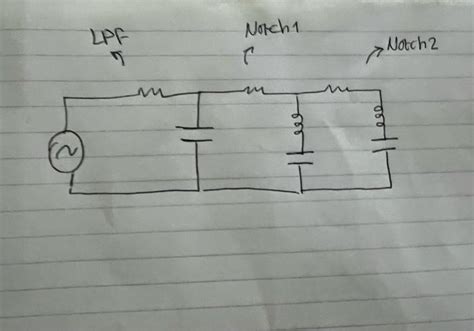 LPF
Notch1
Notch2